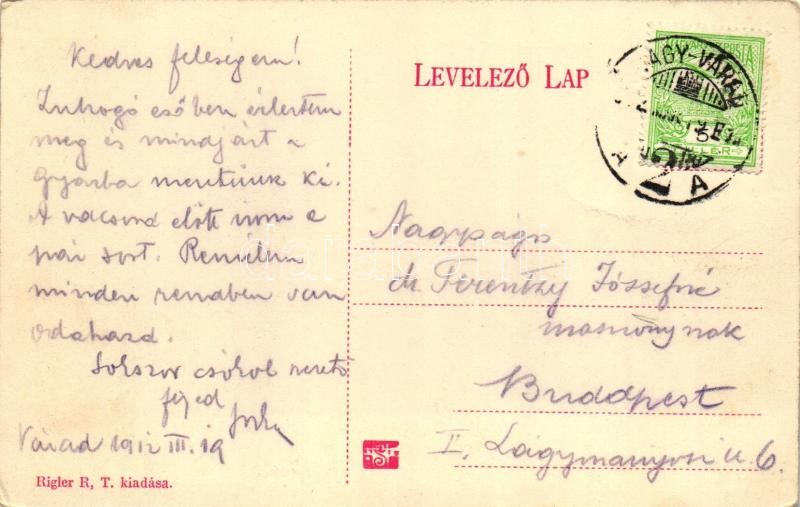 Kedves feleségem!
Zuhogó esőben érkeztem
meg és mindjárt a
gyárba mentünk ki.
A vacsora előtt írom e
pár sort. Remélem
minden rendben van
odahaza.
Sokszor csókol szerető
férjed
Várad 1912 III. 19
Rigler R, T. kiadása.
LEVELEZŐ LAP
NAGY-VÁRAD
A A
FILLÉR
Nagyságos
dr Ferentzy Józsefné
Budapest
I. Lágymányosi u 6.
darabanth